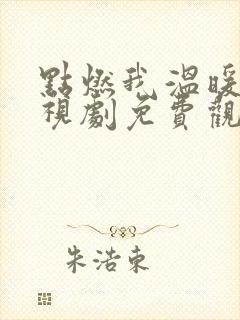 點燃我溫暖
視劇免費觀
朱浩東